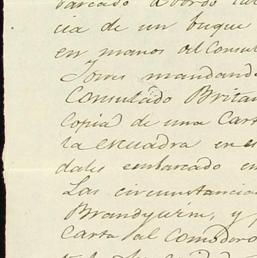 barcado abordo
cia de un buque
en manos del Consul
Jones mandando
Consulado Britan
Copia de una Cart
la escuadra en
dales embarcado en
Las circunstancia
Brandywine, y
carta al Comodoro